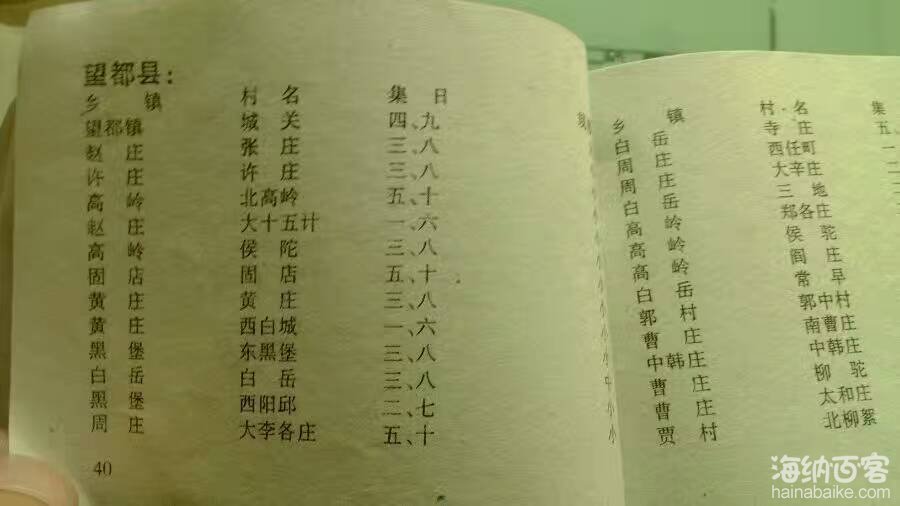 望都县：
乡 镇 村 名 集 日
望都镇 城 关 四、九
赵 庄 张 庄 三、八
许 庄 许 庄 三、八
高 岭 北高岭 五、十
赵 庄 大十五计 一、六
高 岭 侯 陀 三、八
固 店 固 店 五、十
黄 庄 黄 庄 三、八
黄 庄 西白城 一、六
黑 堡 东黑堡 三、八
白 岳 白 岳 三、八
黑 堡 西阳邱 二、七
周 庄 大李各庄 五、十
40
乡 镇 村 名 集
白 岳 寺 庄 五、
周 庄 西任町 一
周 庄 大辛庄 二
白 岳 三 地
高 岭 郑各庄
高 岭 侯 驼
高 岭 阎 庄
白 岳 常 早
郭 村 郭中村
曹 庄 南曹庄
中韩庄 中韩庄
曹 庄 柳 驼
曹 庄 太和庄
贾 村 北柳絮
海纳百客
hainabaike.com